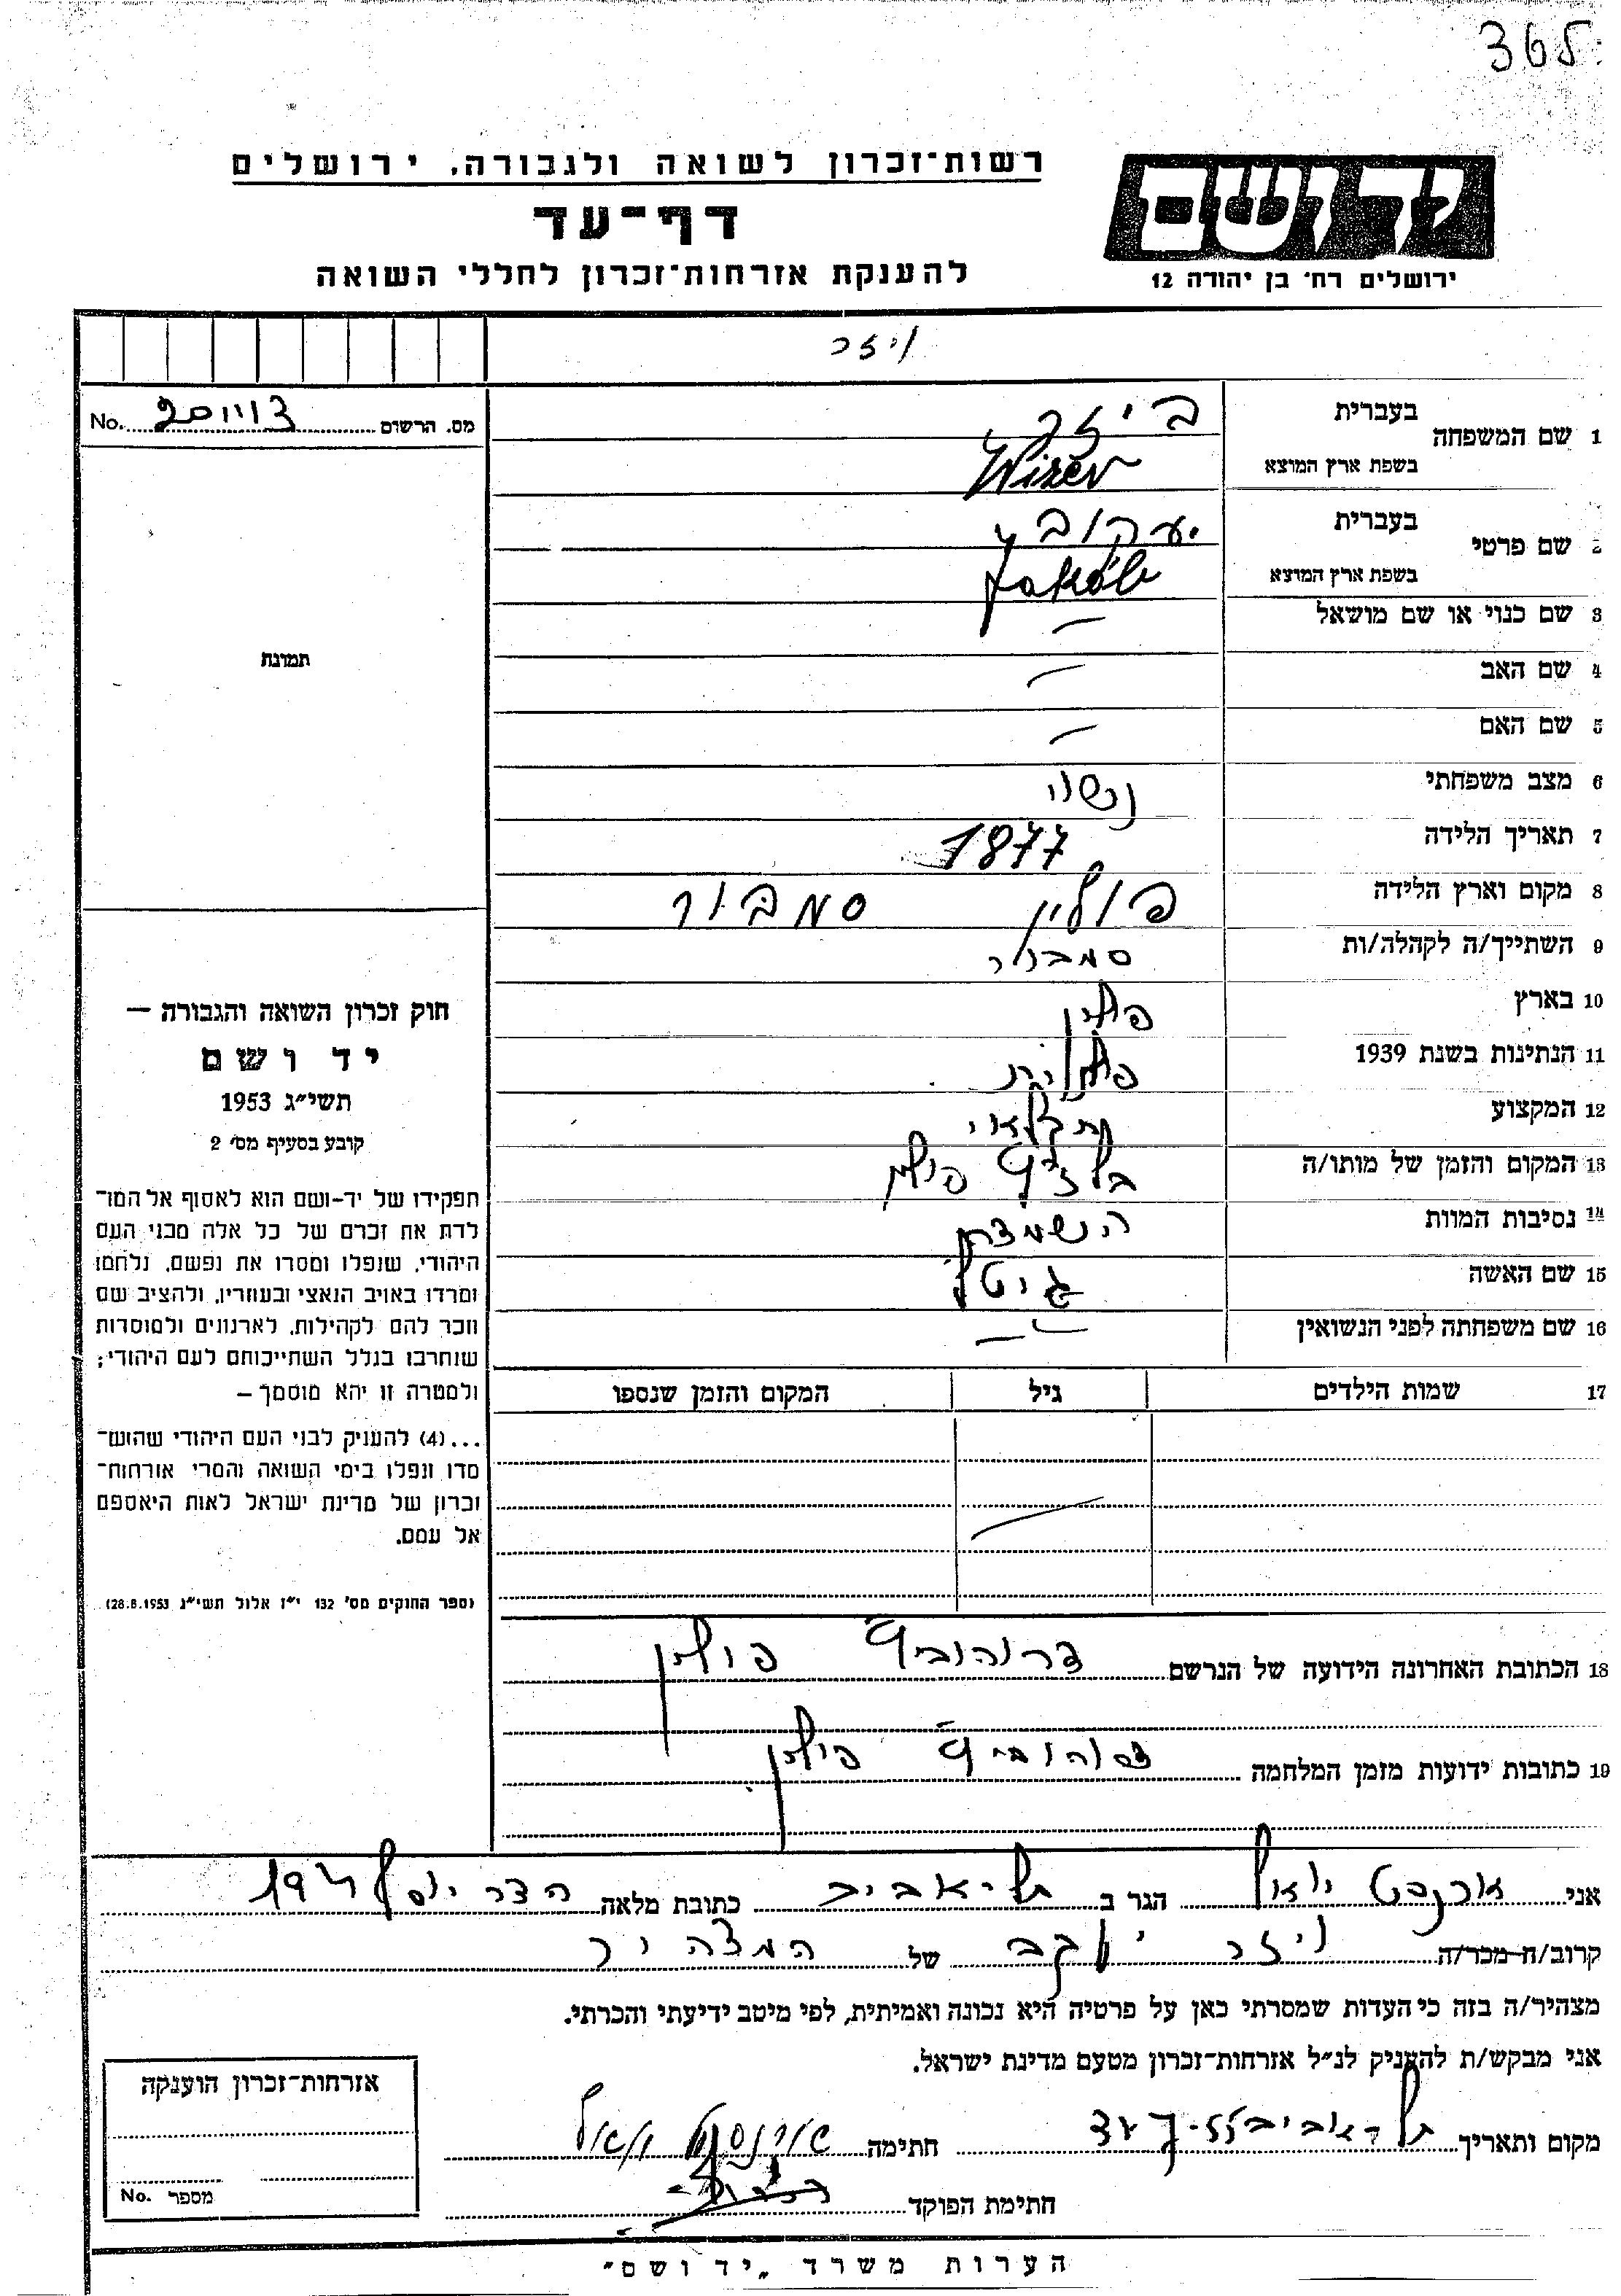 365
רשות־זכרון לשואה ולגבורה, ירושלים
דף־עד
להענקת אזרחות־זכרון לחללי השואה
יד ושם
ירושלים רח׳ בן יהודה 12
ויזר
מס. הרשום No.
1 שם המשפחה
בעברית ויזר
בשפת ארץ המוצא Wizer
2 שם פרטי
בעברית יעקוב
בשפת ארץ המוצא Jakób
3 שם כנוי או שם מושאל —
4 שם האב —
5 שם האם —
6 מצב משפחתי נשוי
7 תאריך הלידה 1877
8 מקום וארץ הלידה פולין סמבור
9 השתייך/ה לקהלה/ות סמבור
10 בארץ פולין
11 הנתינות בשנת 1939 פולנית
12 המקצוע חקלאי
13 המקום והזמן של מותו/ה בלזץ פולין
14 נסיבות המוות השמדה
15 שם האשה גיטל
16 שם משפחתה לפני הנשואין —
17 שמות הילדים גיל המקום והזמן שנספו
18 הכתובת האחרונה הידועה של הנרשם דרוהוביץ פולין
19 כתובות ידועות מזמן המלחמה דרוהוביץ פולין
תמונה
חוק זכרון השואה והגבורה —
יד ושם
תשי״ג 1953
קובע בסעיף מס׳ 2
תפקידו של יד-ושם הוא לאסוף אל המו־
לדת את זכרם של כל אלה מבני העם
היהודי, שנפלו ומסרו את נפשם, נלחמו
ומרדו באויב הנאצי ובעוזריו, ולהציב שם
וזכר להם לקהילות, לארגונים ולמוסדות
שנחרבו בגלל השתייכותם לעם היהודי;
ולמטרה זו יהא מוסמך —
...(4) להעניק לבני העם היהודי שהוש־
מדו ונפלו בימי השואה והמרי אזרחות־
זכרון של מדינת ישראל לאות היאספם
אל עמם.
(ספר החוקים מס׳ 132 י״ז אלול תשי״ג 28.8.1953)
אני יואל הגר ב תל־אביב כתובת מלאה הדר יוסף
קרוב/ה מכר/ה ויזר יעקב של המצהיר
מצהיר/ה בזה כי העדות שמסרתי כאן על פרטיה היא נכונה ואמיתית, לפי מיטב ידיעתי והכרתי.
אני מבקש/ת להעניק לנ״ל אזרחות-זכרון מטעם מדינת ישראל.
מקום ותאריך תל־אביב חתימה
חתימת הפוקד
אזרחות-זכרון הוענקה
מספר No.
הערות משרד „יד ושם״